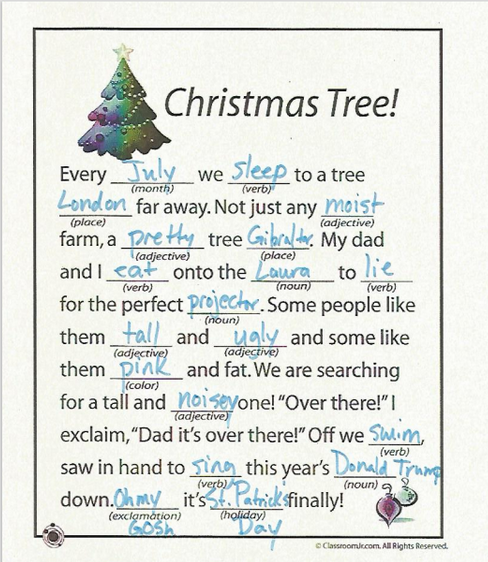 Christmas Tree!
Every July we sleep to a tree
(month) (verb)
London far away. Not just any moist
(place) (adjective)
farm, a pretty tree Gibraltar. My dad
(adjective) (place)
and I eat onto the Laura to lie
(verb) (noun) (verb)
for the perfect projector. Some people like
(noun)
them tall and ugly and some like
(adjective) (adjective)
them pink and fat. We are searching
(color)
for a tall and noisey one! "Over there!" I
(adjective)
exclaim, "Dad it's over there!" Off we swim,
(verb)
saw in hand to sing this year's Donald Trump
(verb) (noun)
down. Oh my it's St. Patrick's finally!
(exclamation) (holiday)
Gosh Day
© ClassroomJr.com. All Rights Reserved.